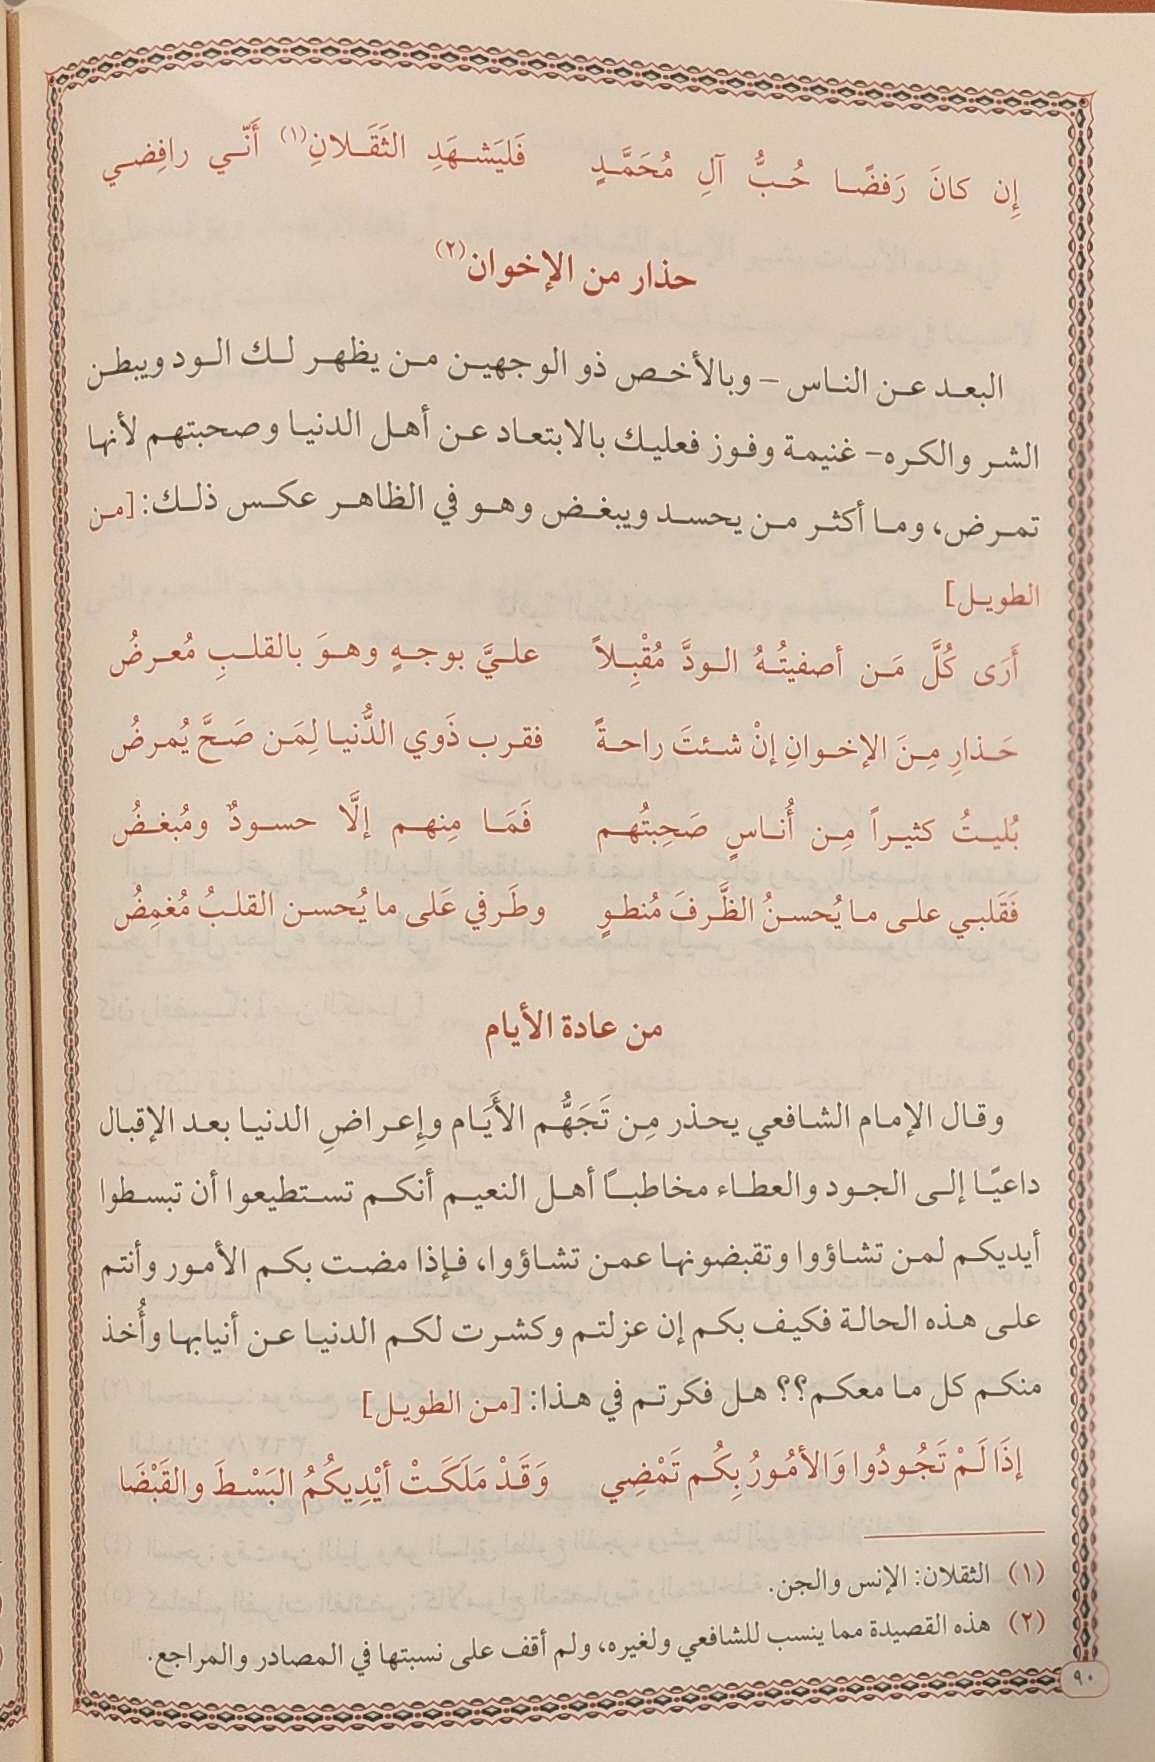 إِن كانَ رَفضًا حُبُّ آلِ مُحَمَّدٍ فَليَشهَدِ الثَقَلانِ(١) أَنّي رافِضي
حذار من الإخوان(٢)
البعد عن الناس – وبالأخص ذو الوجهين من يظهر لك الود ويبطن
الشر والكره– غنيمة وفوز فعليك بالابتعاد عن أهل الدنيا وصحبتهم لأنها
تمرض، وما أكثر من يحسد ويبغض وهو في الظاهر عكس ذلك: [من
الطويل]
أَرَى كُلَّ مَن أصفيتُهُ الودَّ مُقْبِلاً عليَّ بوجهٍ وهوَ بالقلبِ مُعرضُ
حَذارِ مِنَ الإخوانِ إنْ شئتَ راحةً فقرب ذَوي الدُّنيا لِمَن صَحَّ يُمرضُ
بُليتُ كثيراً مِن أُناسٍ صَحِبتُهم فَمَا مِنهم إلَّا حسودٌ ومُبغضُ
فَقَلبي على ما يُحسنُ الظَّرفَ مُنطوٍ وطَرفي عَلى ما يُحسن القلبُ مُغمِضُ
من عادة الأيام
وقال الإمام الشافعي يحذر مِن تَجَهُّم الأَيَام وإِعراضِ الدنيا بعد الإقبال
داعيًا إلى الجود والعطاء مخاطبًا أهل النعيم أنكم تستطيعوا أن تبسطوا
أيديكم لمن تشاؤوا وتقبضونها عمن تشاؤوا، فإذا مضت بكم الأمور وأنتم
على هذه الحالة فكيف بكم إن عزلتم وكشرت لكم الدنيا عن أنيابها وأُخذ
منكم كل ما معكم؟؟ هل فكرتم في هذا: [من الطويل]
إذَا لَمْ تَجُودُوا وَالأمُورُ بِكُم تَمْضِي وَقَدْ مَلَكَتْ أيْدِيكُمُ البَسْطَ والقَبْضَا
(١) الثقلان: الإنس والجن.
(٢) هذه القصيدة مما ينسب للشافعي ولغيره، ولم أقف على نسبتها في المصادر والمراجع.
٩٠